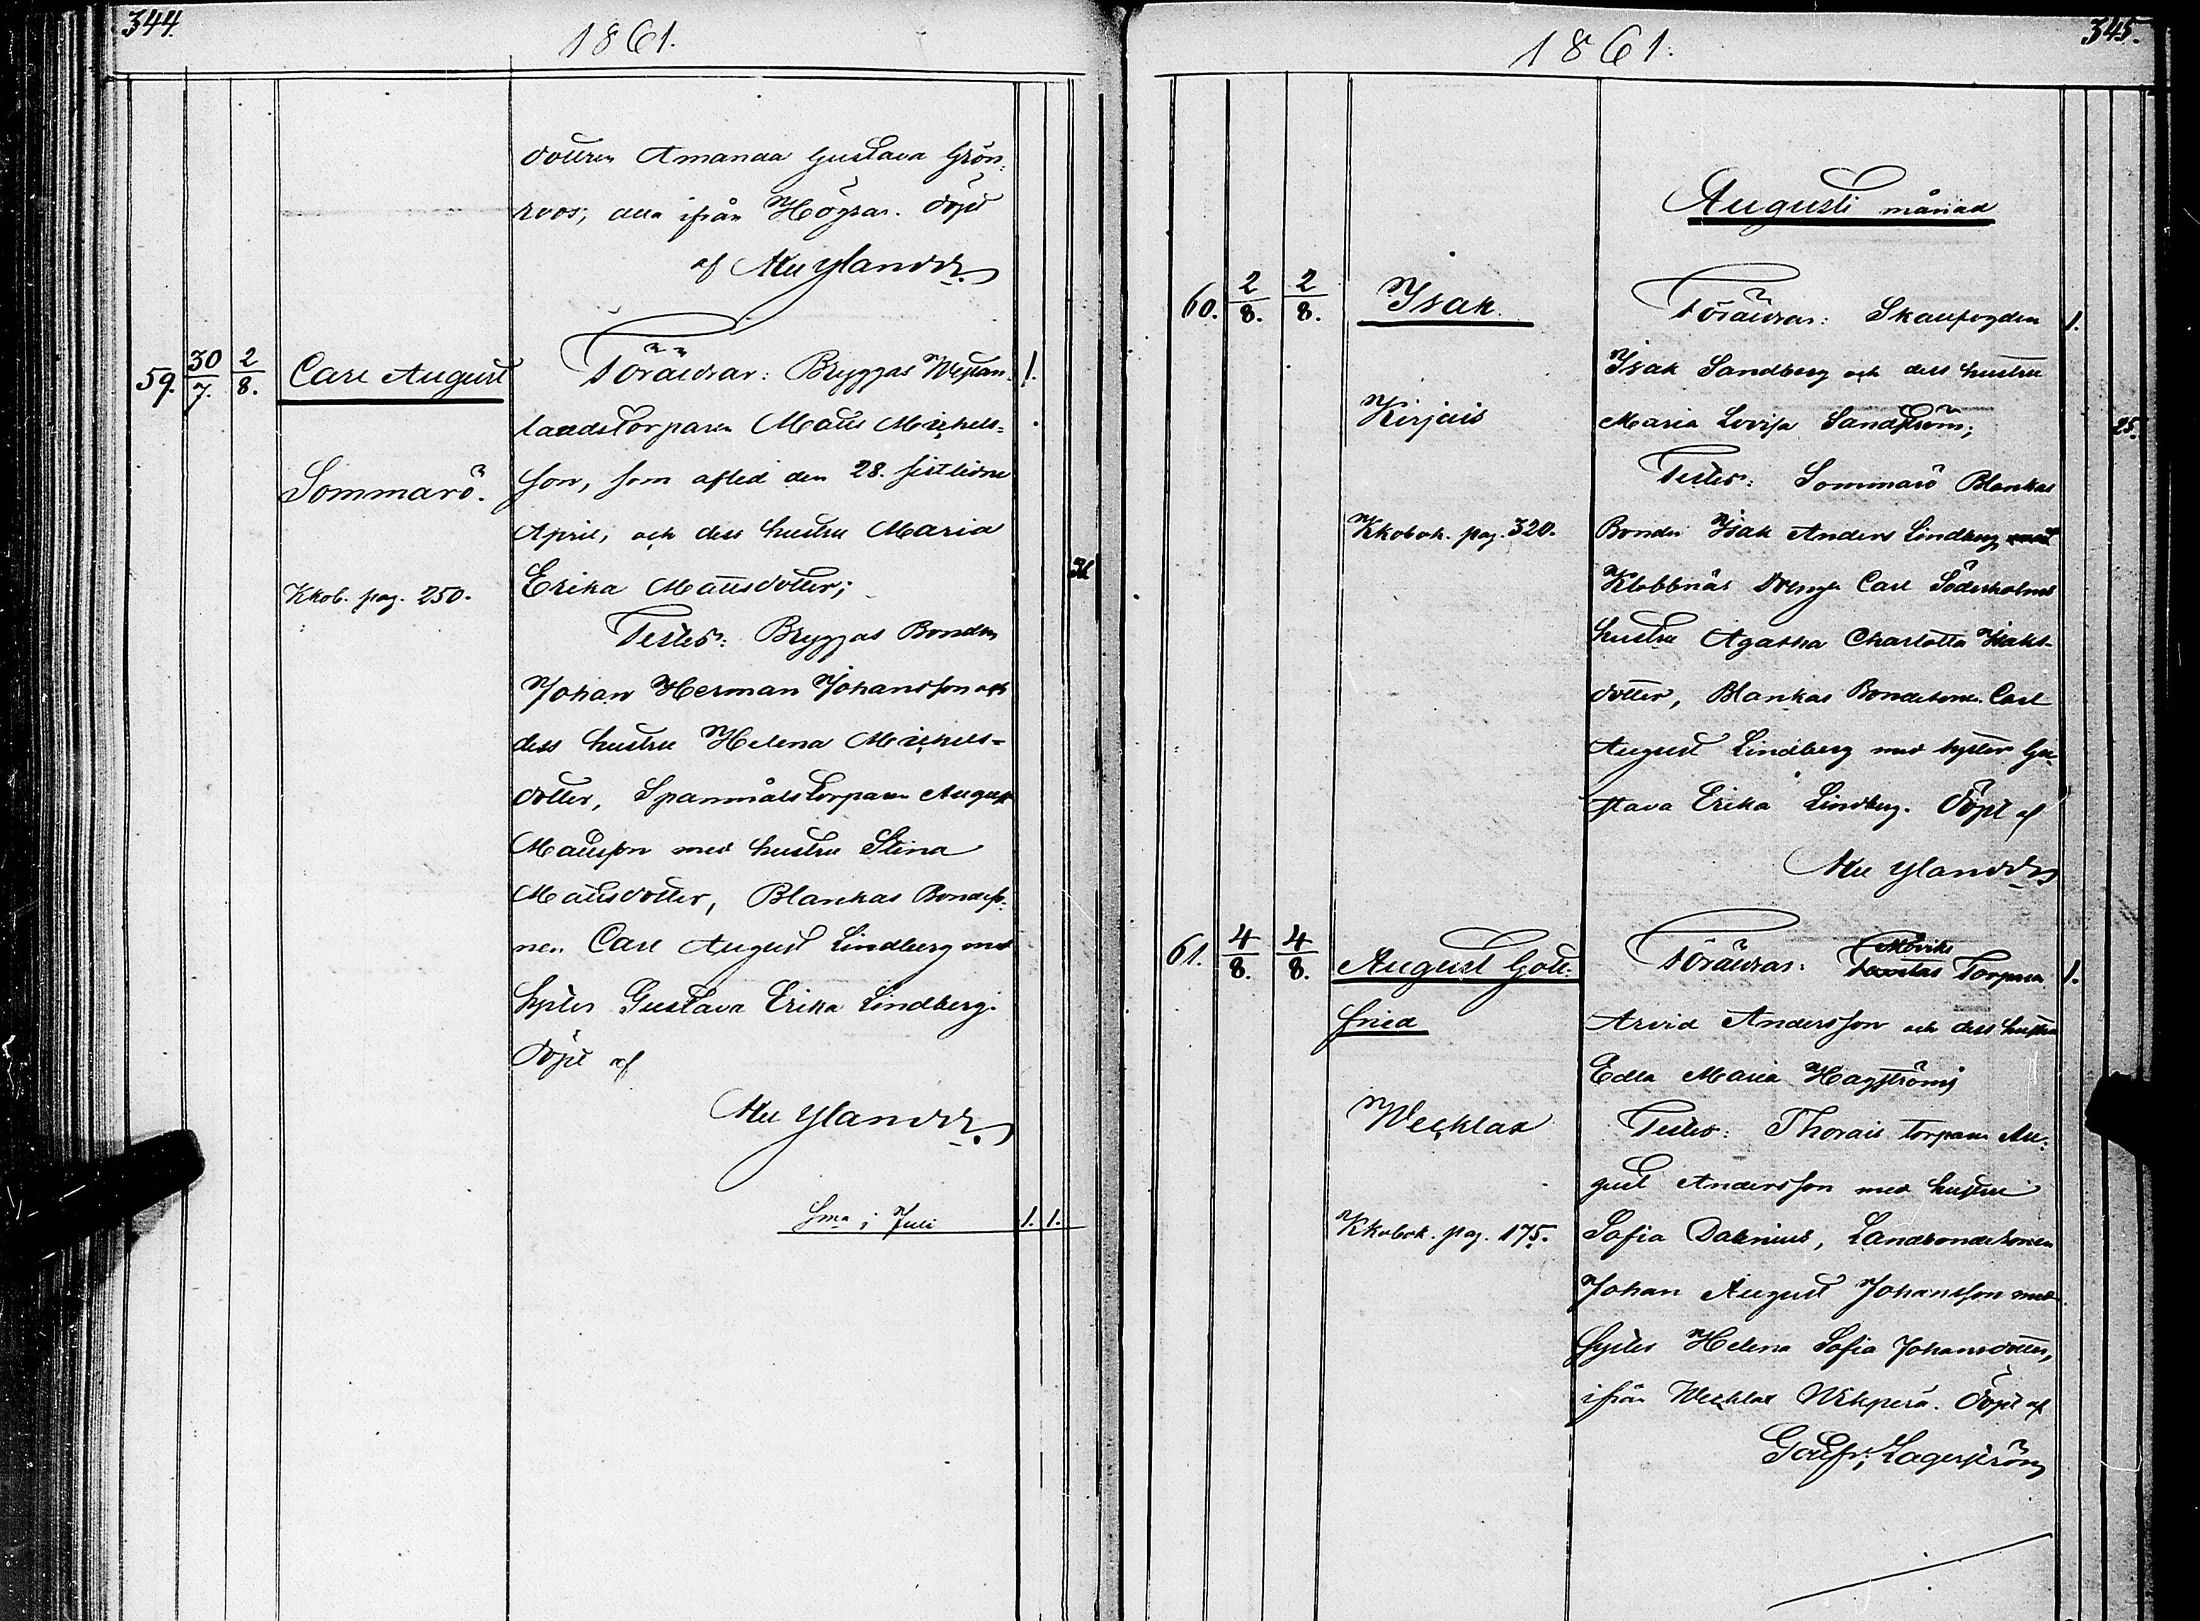 344.
1861.
dottren Amanda Gustava Grön-
roos; alla ifrån Högsar. Döpt
af Alex Ylander.
59. 30/7. 2/8. Carl August Föräldrar: Bryggas Westan- 1.
landstorparen Matts Michels-
Sommarö. son, som afled den 28. sistlidne
April, och dess hustru Maria
Kkob. pag. 250. Erika Mattsdotter;
Testes: Bryggas Bonden
Johan Herman Johansson och
dess hustru Helena Michels-
dotter, Spannmålstorparen August
Mattsson med hustru Stina
Mattsdotter, Blankas Bondeso-
nen Carl August Lindberg med
syster Gustava Erika Lindberg.
Döpt af
Alex Ylander.
Sma i Juli 1. 1.
345.
1861.
Augusti månad
60. 2/8. 2/8. Isak. Föräldrar: Skattfogden 1.
Isak Sandberg och dess hustru
Kirjais Maria Lovisa Sandström; 25.
Testes: Sommarö Blankas
Kkobok. pag. 320. Bonden Isak Anders Lindberg
Klobbnäs Drengen Carl Söderholms
hustru Agatha Charlotta Isaks-
dotter, Blankas Bondesonen Carl
August Lindberg med syster Gu-
stava Erika Lindberg. Döpt af
Alex Ylander
61. 4/8. 4/8. August Gott- Föräldrar: Torparen 1.
fried Arvid Andersson och dess hustru
Edla Maria Hagström;
Wecklax Testes: Thorais torparen Au-
gust Andersson med hustru
Kkobok. pag. 175. Sofia Dalenius, Landbondesonen
Johan August Johansson med
syster Helena Sofia Johansdotter,
ifrån Wecklax Wikperä. Döpt af
Gottfr: Lagerström